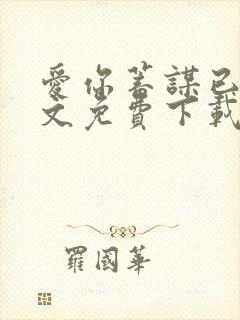 愛你蓄謀已
文免費下載
羅國華